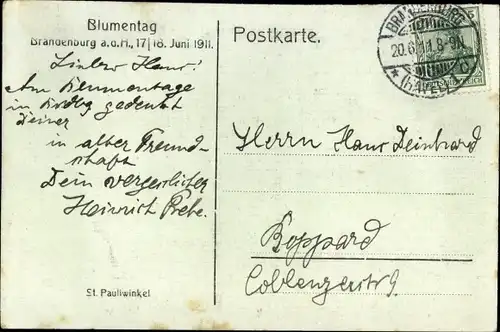 Blumentag
Brandenburg a.d.H., 17/18. Juni 1911.
Lieber Hans!
Am Blumentage
in Brdbg gedenkt
Deiner
in alter Freund-
schaft
Dein vergesslicher
Heinrich
St. Pauliwinkel
Postkarte.
BRANDENBURG
20.6.11.8-9N.
* (HAVEL) c
Herrn Hans Deinhard
Boppard
Coblenzerstr 9.